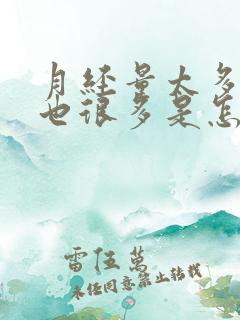 月经量太多
也很多是怎
雷伍萬
未经同意禁止转载